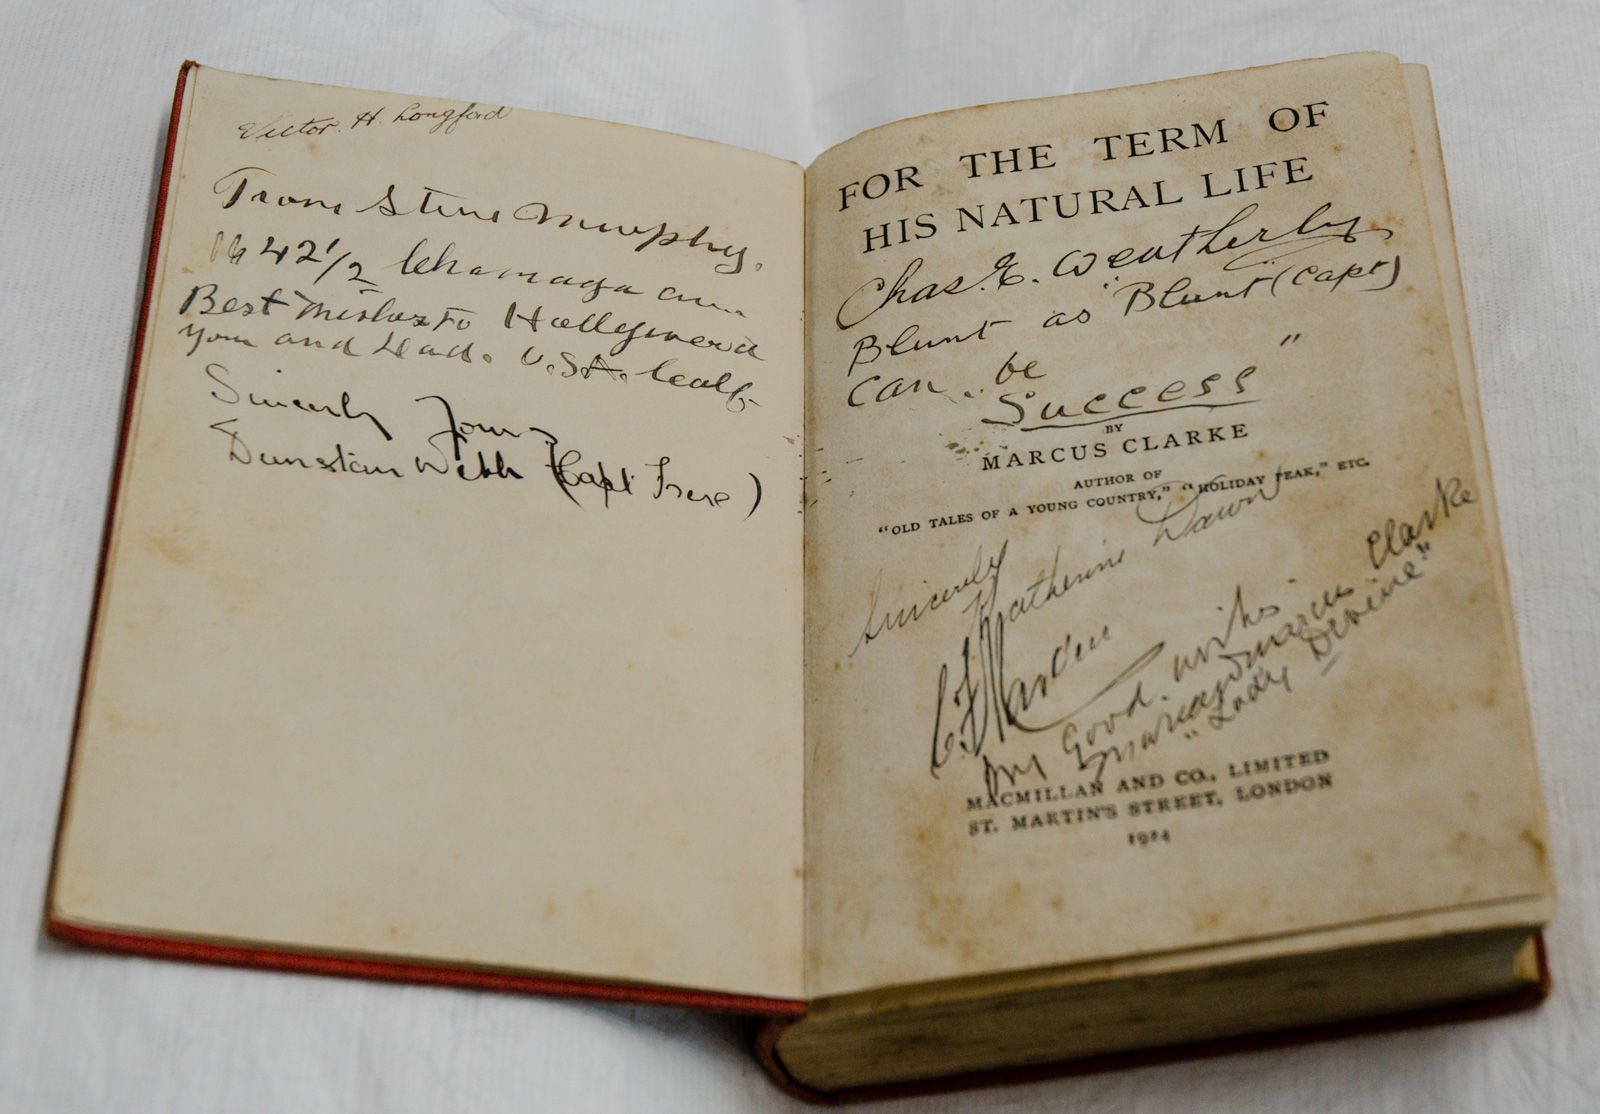 Victor. H. Longford
From Steve Murphy.
1642½ Chamaga
Best Wishes to Hollywood
You and Lead. U.S.A. Calf.
Sincerly Yours
Dunstan Webb (Capt Frere)
FOR THE TERM OF
HIS NATURAL LIFE
Chas. E. Weatherby
Blunt as "Blunt" (Capt)
can .. be
Success"
BY
MARCUS CLARKE
AUTHOR OF
"OLD TALES OF A YOUNG COUNTRY," "HOLIDAY PEAK," ETC.
Sincerely
Katherine Dawn
My Good wishes
Marion Marcus Clarke
"Lady Devine"
MACMILLAN AND CO., LIMITED
ST. MARTIN'S STREET, LONDON
1924